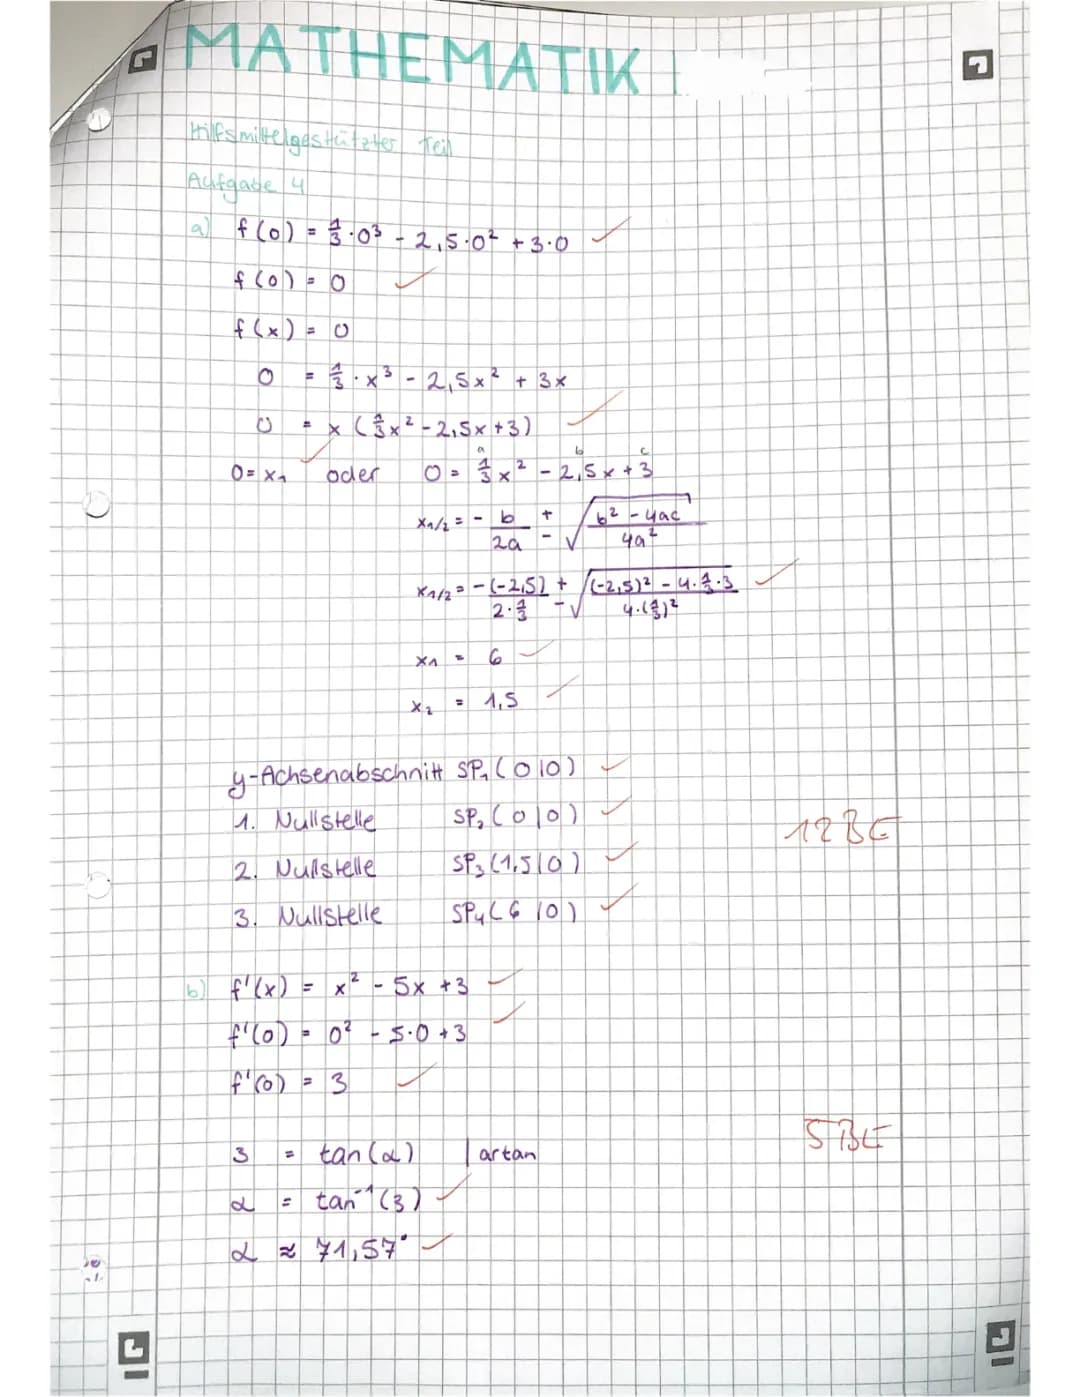 MATHEMATIK
Hilfsmittelgestützter Teil
Aufgabe 4
a) f(0) = 1/3 · 0³ - 2,5 · 0² + 3 · 0 ✓
f(0) = 0 ✓
f(x) = 0
0 = 1/3 · x³ - 2,5x² + 3x
0 = x (1/3x² - 2,5x + 3) ✓
a b c
0 = x₁ ✓ oder 0 = 1/3 x² - 2,5x + 3
x₁/₂ = - b/2a ± √((b² - 4ac)/4a²)
x₁/₂ = -(-2,5)/(2·1/3) ± √(((-2,5)² - 4·1/3·3)/(4·(1/3)²)) ✓
x₁ = 6 ✓
x₂ = 1,5 ✓
y-Achsenabschnitt SP₁ (0|0) ✓
1. Nullstelle SP₂ (0|0) ✓
12 BE
2. Nullstelle SP₃ (1,5|0) ✓
3. Nullstelle SP₄ (6|0) ✓
b) f'(x) = x² - 5x + 3 ✓
f'(0) = 0² - 5·0 + 3 ✓
f'(0) = 3 ✓
5 BE
3 = tan(α) | artan
α = tan⁻¹(3) ✓
α ≈ 71,57° ✓